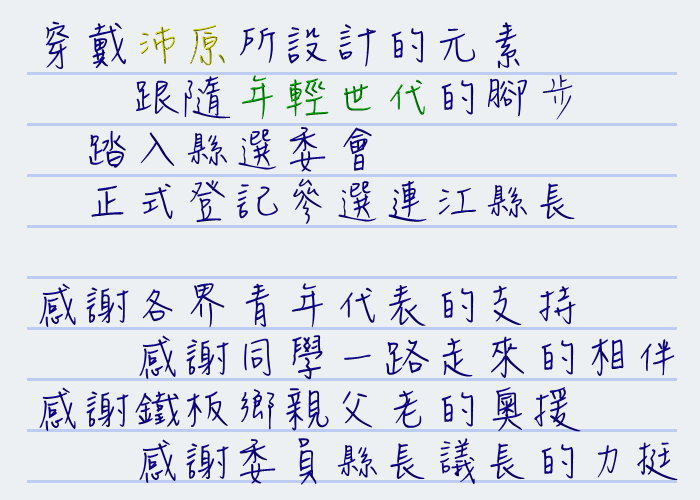 穿戴沛原所設計的元素
跟隨年輕世代的腳步
踏入縣選委會
正式登記參選連江縣長
感謝各界青年代表的支持
感謝同學一路走來的相伴
感謝鐵板鄉親父老的奧援
感謝委員縣長議長的力挺